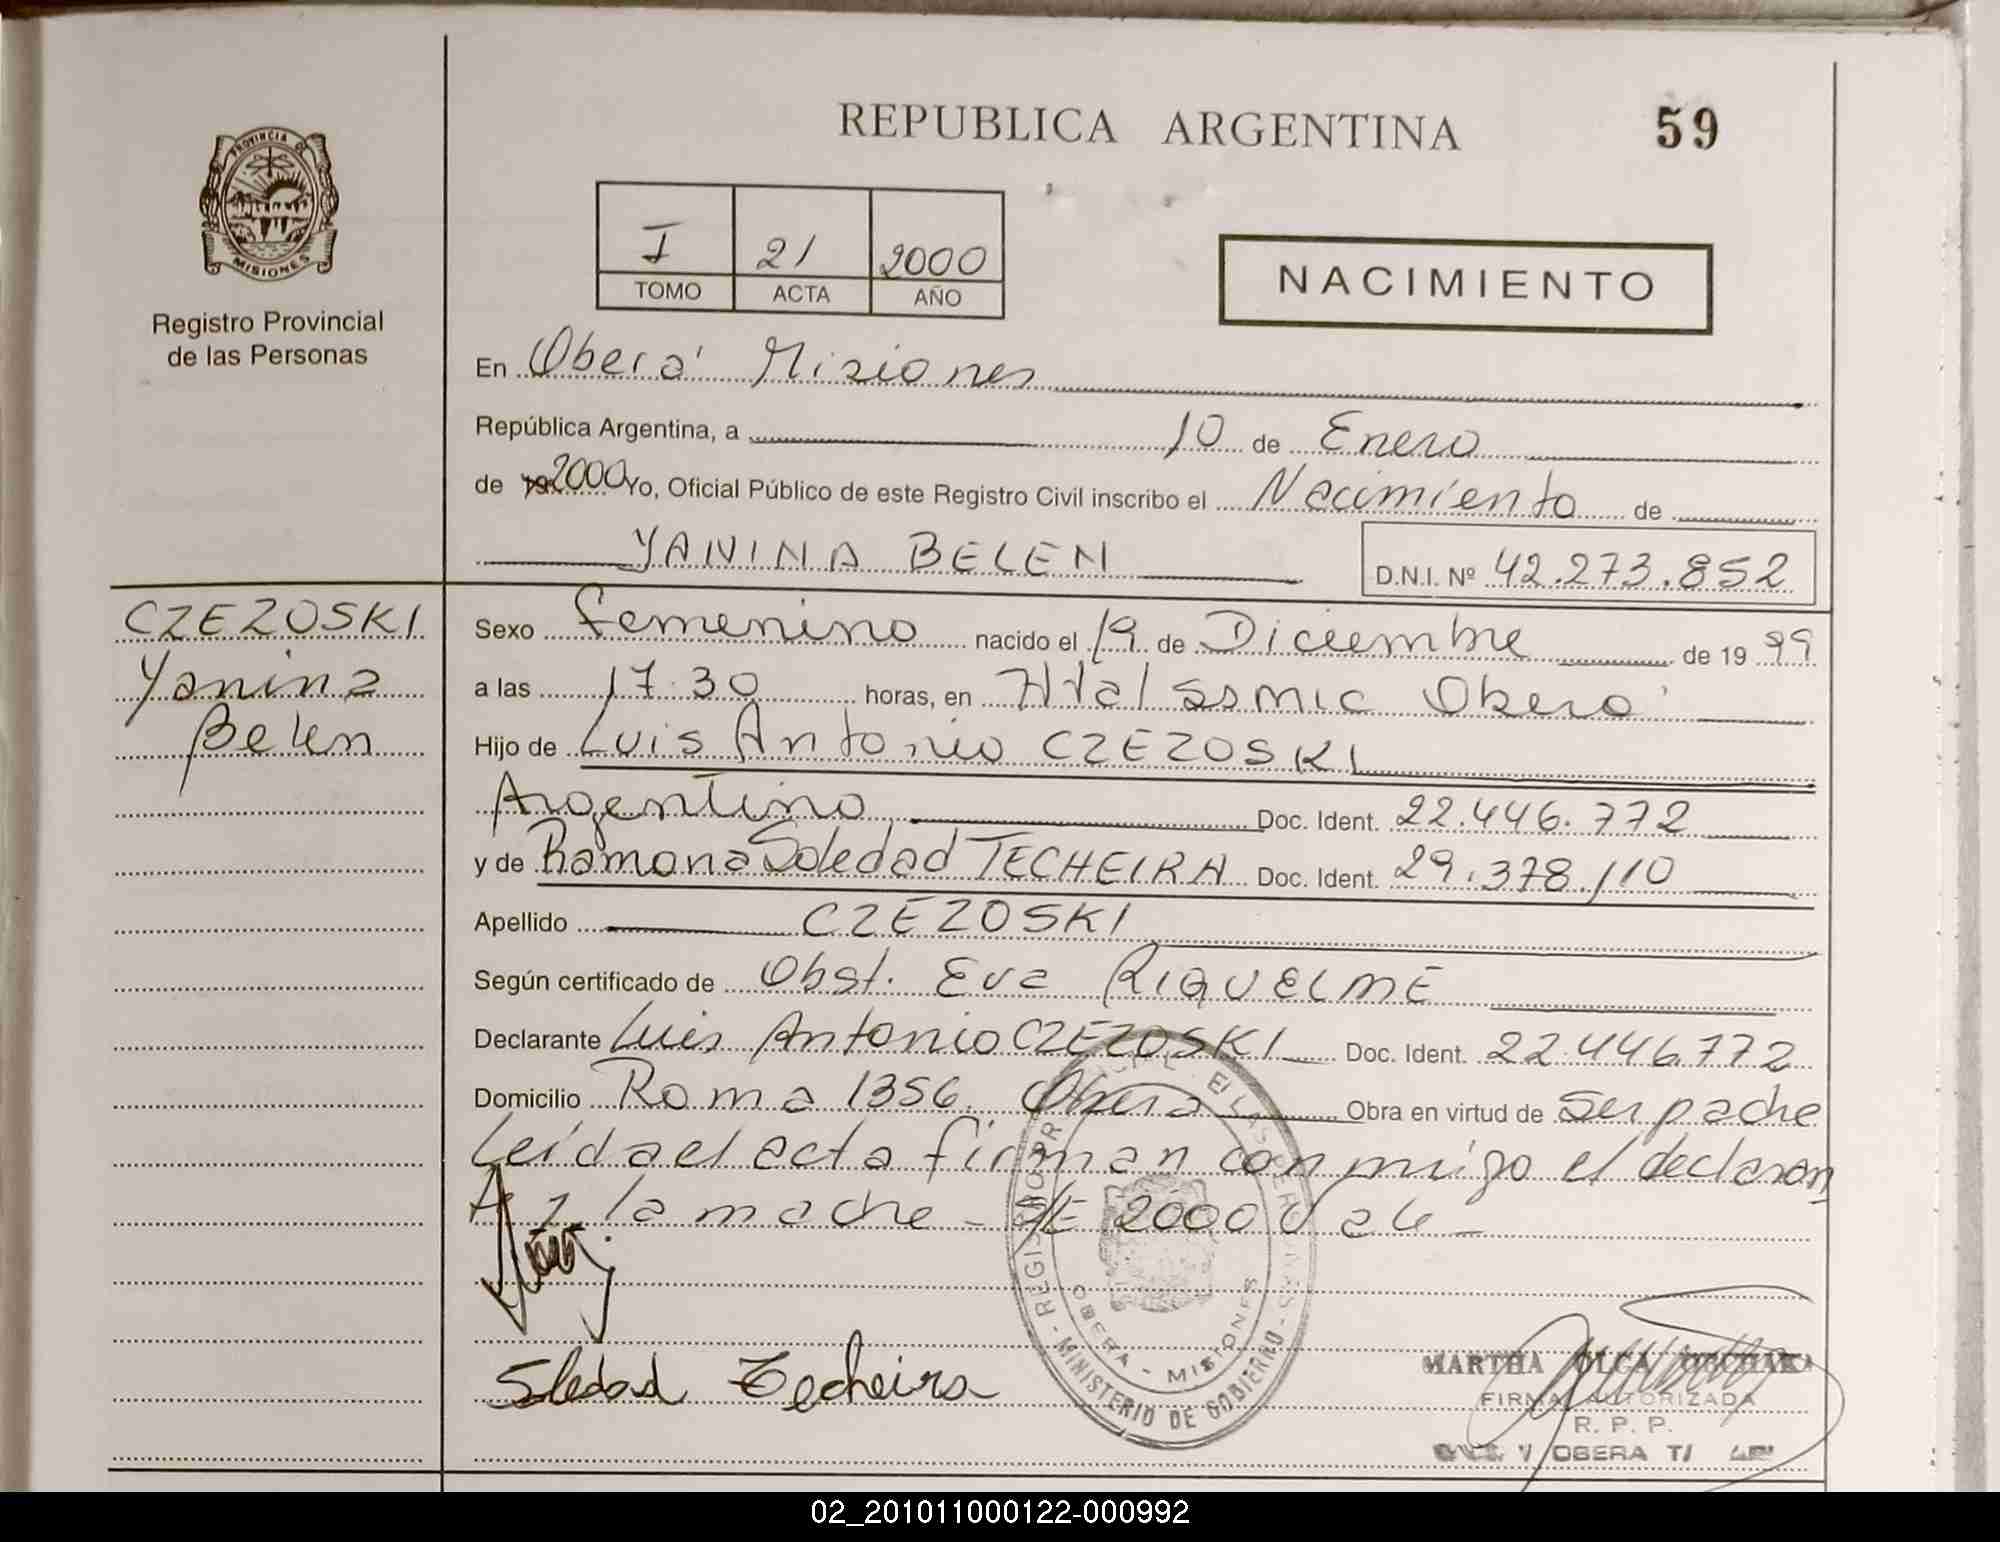 REPUBLICA ARGENTINA
59
PROVINCIA DE
MISIONES
Registro Provincial
de las Personas
I 21 2000
TOMO ACTA AÑO
NACIMIENTO
En Oberá Misiones
República Argentina, a 10 de Enero
de 19 2000 Yo, Oficial Público de este Registro Civil inscribo el Nacimiento de
YANINA BELEN
D.N.I. Nº 42.273.852
CZEZOSKI
Yanina
Belen
Sexo femenino nacido el 19 de Diciembre de 1999
a las 17.30 horas, en Htal samic Oberá
Hijo de Luis Antonio CZEZOSKI
Argentino Doc. Ident. 22.446.772
y de Ramona Soledad TECHEIRA Doc. Ident. 29.378.110
Apellido CZEZOSKI
Según certificado de Obst. Eva RIQUELME
Declarante Luis Antonio CZEZOSKI Doc. Ident. 22.446.772
Domicilio Roma 1356 Obera Obra en virtud de ser padre
Leída el acta firman conmigo el declaran
te y la madre - S/E 2000 Vale -
Soledad Techeira
MINISTERIO DE GOBIERNO
OBERA - MISIONES
MARTHA OLGA
FIRMA AUTORIZADA
R. P. P.
OBERA
02_201011000122-000992